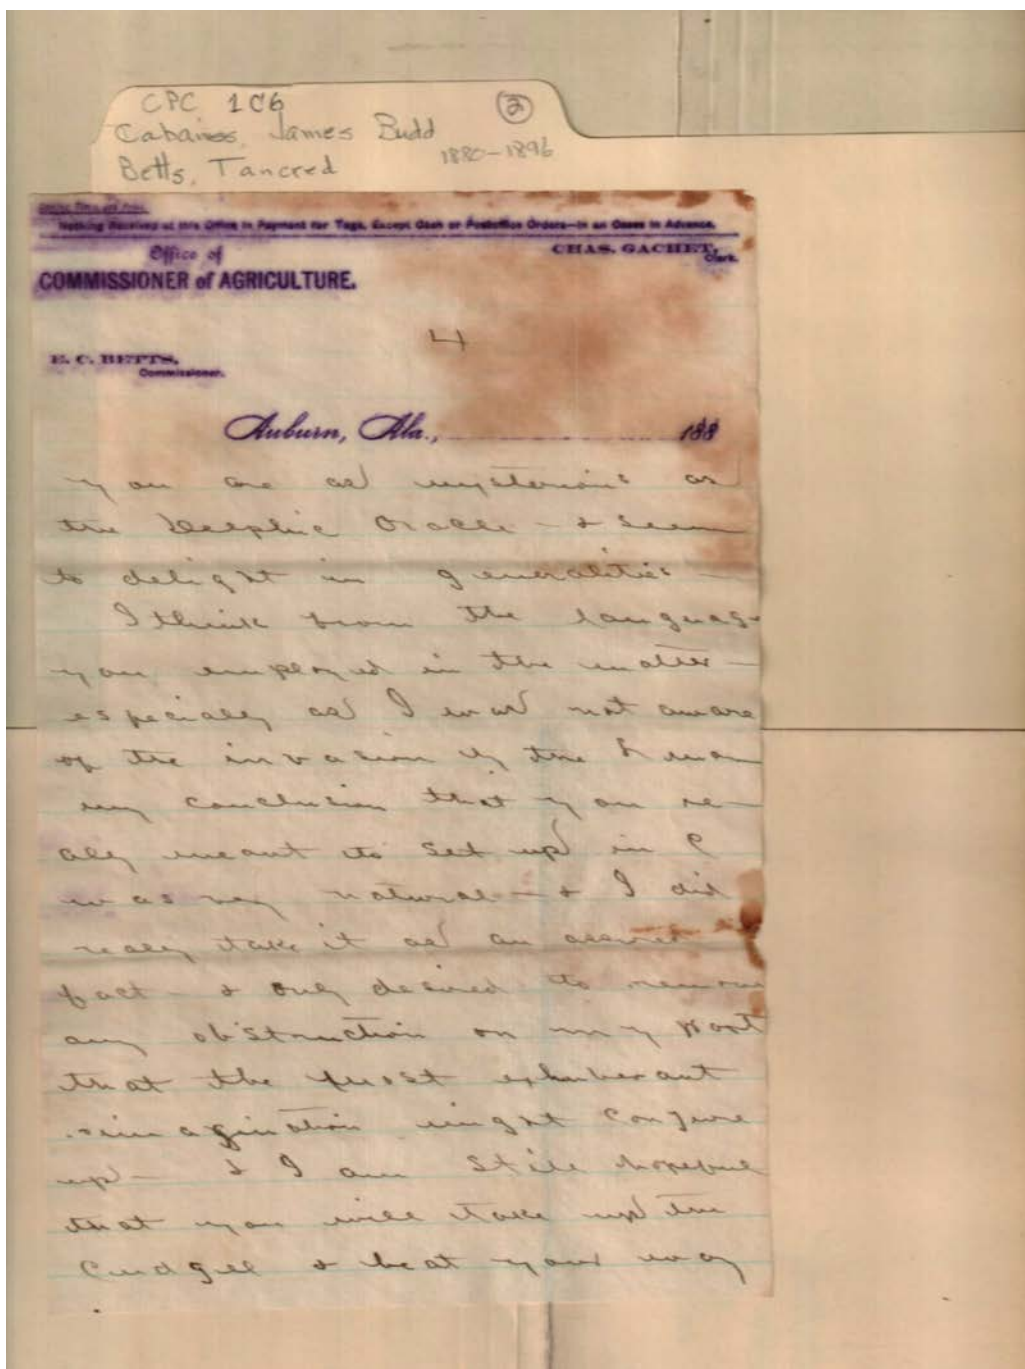 CPC 1C6
(2)
Cabaniss, James Budd
1880-1896
Betts, Tancred
Nothing Received at this Office in Payment for Tags, Except Cash or Postoffice Orders—in all Cases in Advance.
Office of
CHAS. GACHET,
Clerk.
COMMISSIONER of AGRICULTURE.
4
E. C. BETTS,
Commissioner.
Auburn, Ala., 188
you are as mysterious as
the Delphic Oracle - & seem
to delight in generalities -
I think from the language
you employed in the matter -
especially as I was not aware
of the invasion of the
my conclusion that you re-
ally meant to set up in C
was very natural - & I did
really take it as an assured
fact - & only desired to remove
any obstruction on my part
that the most exhuberant
imagination might conjure
up - & I am still hopeful
that you will take up the
Cudgel & beat your way